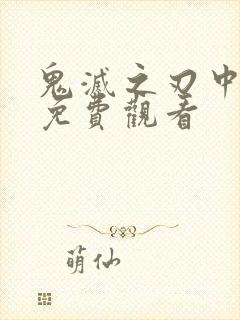 鬼滅之刃中
免費觀看
萌仙